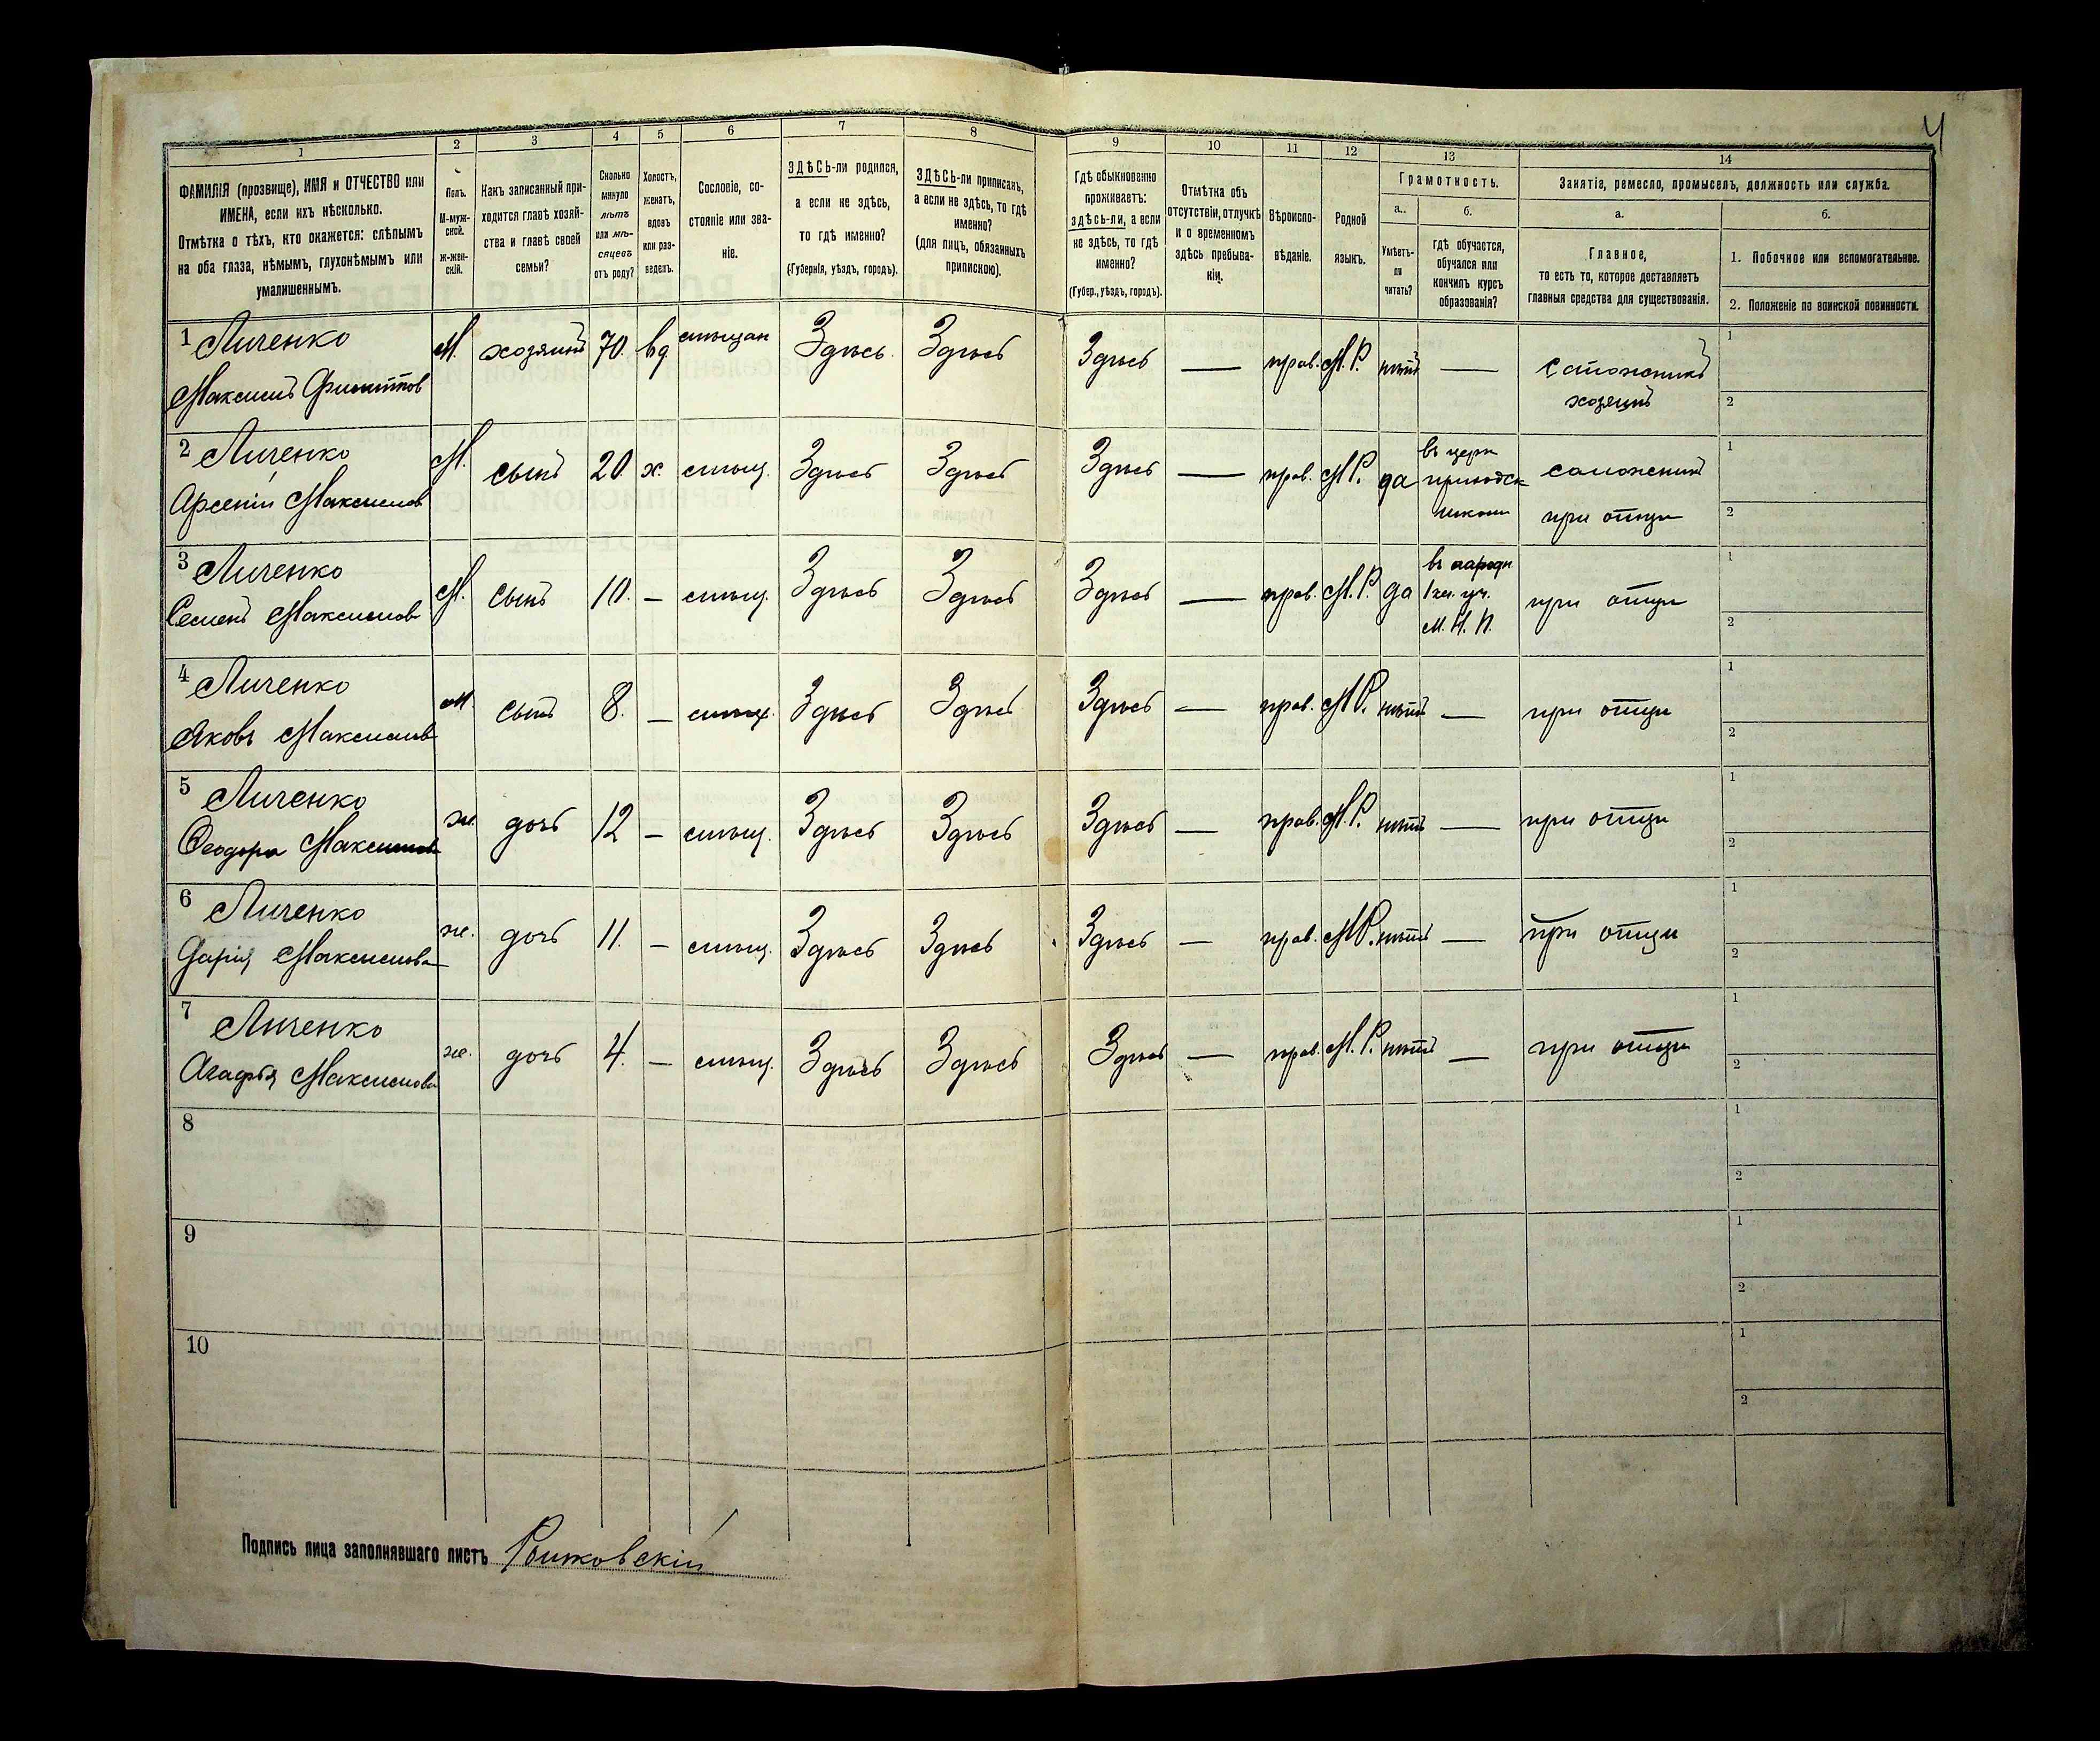 4
1 2 3 4 5 6 7 8 9 10 11 12 13 14
ФАМИЛІЯ (прозвище), ИМЯ и ОТЧЕСТВО или
ИМЕНА, если ихъ нѣсколько.
Отмѣтка о тѣхъ, кто окажется: слѣпымъ
на оба глаза, нѣмымъ, глухонѣмымъ или
умалишеннымъ.
Полъ.
М-муж-
ской.
Ж-жен-
скій.
Какъ записанный при-
ходится главѣ хозяй-
ства и главѣ своей
семьи?
Сколько
минуло
лѣтъ
или мѣ-
сяцевъ
отъ роду?
Холостъ,
женатъ,
вдовъ
или раз-
веденъ.
Сословіе, со-
стояніе или зва-
ніе.
ЗДѢСЬ-ли родился,
а если не здѣсь,
то гдѣ именно?
(Губернія, уѣздъ, городъ).
ЗДѢСЬ-ли приписанъ,
а если не здѣсь, то гдѣ
именно?
(для лицъ, обязанныхъ
припискою).
Гдѣ обыкновенно
проживаетъ:
здѣсь-ли, а если
не здѣсь, то гдѣ
именно?
(Губер., уѣздъ, городъ).
Отмѣтка объ
отсутствіи, отлучкѣ
и о временномъ
здѣсь пребыва-
ніи.
Вѣроиспо-
вѣданіе.
Родной
языкъ.
Грамотность.
а.
Умѣетъ-
ли
читать?
б.
гдѣ обучается,
обучался или
кончилъ курсъ
образованія?
Занятіе, ремесло, промыселъ, должность или служба.
а.
Главное,
то есть то, которое доставляетъ
главныя средства для существованія.
б.
1. Побочное или вспомогательное.
2. Положеніе по воинской повинности.
1 Личенко М. хозяинъ 70. вд мѣщан Здѣсь. Здѣсь Здѣсь — прав. М.Р. нѣтъ — сапожникъ 1
Максимъ Филиппов хозяинъ 2
2 Личенко М. сынъ 20. х. мѣщ. Здѣсь Здѣсь Здѣсь — прав. М.Р. да въ церк сапожникъ 1
Арсеній Максимов приходск
школи при отци 2
3 Личенко М. сынъ 10. — мѣщ. Здѣсь Здѣсь Здѣсь — прав. М.Р. да въ народн при отци 1
Семенъ Максимов 1 кл. уч.
М. Н. П. 2
4 Личенко М сынъ 8. — мѣщ. Здѣсь Здѣсь Здѣсь — прав. М.Р. нѣтъ — при отци 1
Яковъ Максимов 2
5 Личенко ж. дочь 12 — мѣщ. Здѣсь Здѣсь Здѣсь — прав. М.Р. нѣтъ — при отци 1
Феодора Максимов 2
6 Личенко ж. дочь 11. — мѣщ. Здѣсь Здѣсь Здѣсь — прав. М.Р. нѣтъ — при отци 1
Дарія Максимова 2
7 Личенко ж. дочь 4. — мѣщ. Здѣсь Здѣсь Здѣсь — прав. М.Р. нѣтъ — при отци 1
Агафья Максимова 2
8 1
2
9 1
2
10 1
2
Подпись лица заполнявшаго листъ